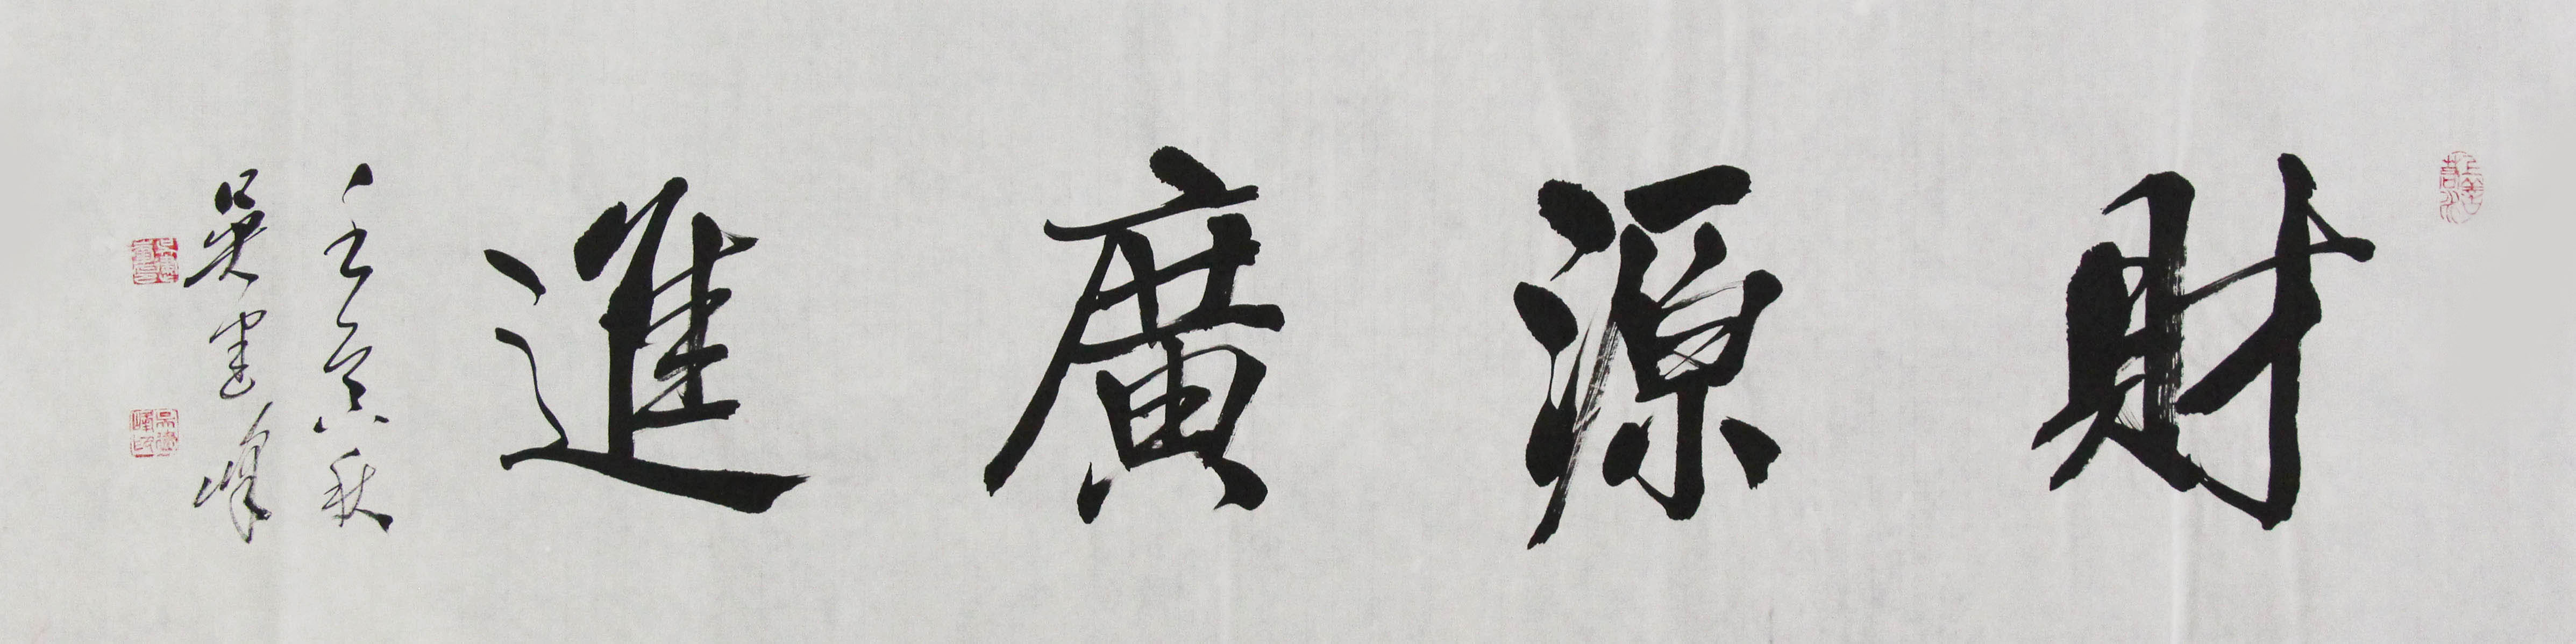 財源廣進
壬寅秋
吳建峰